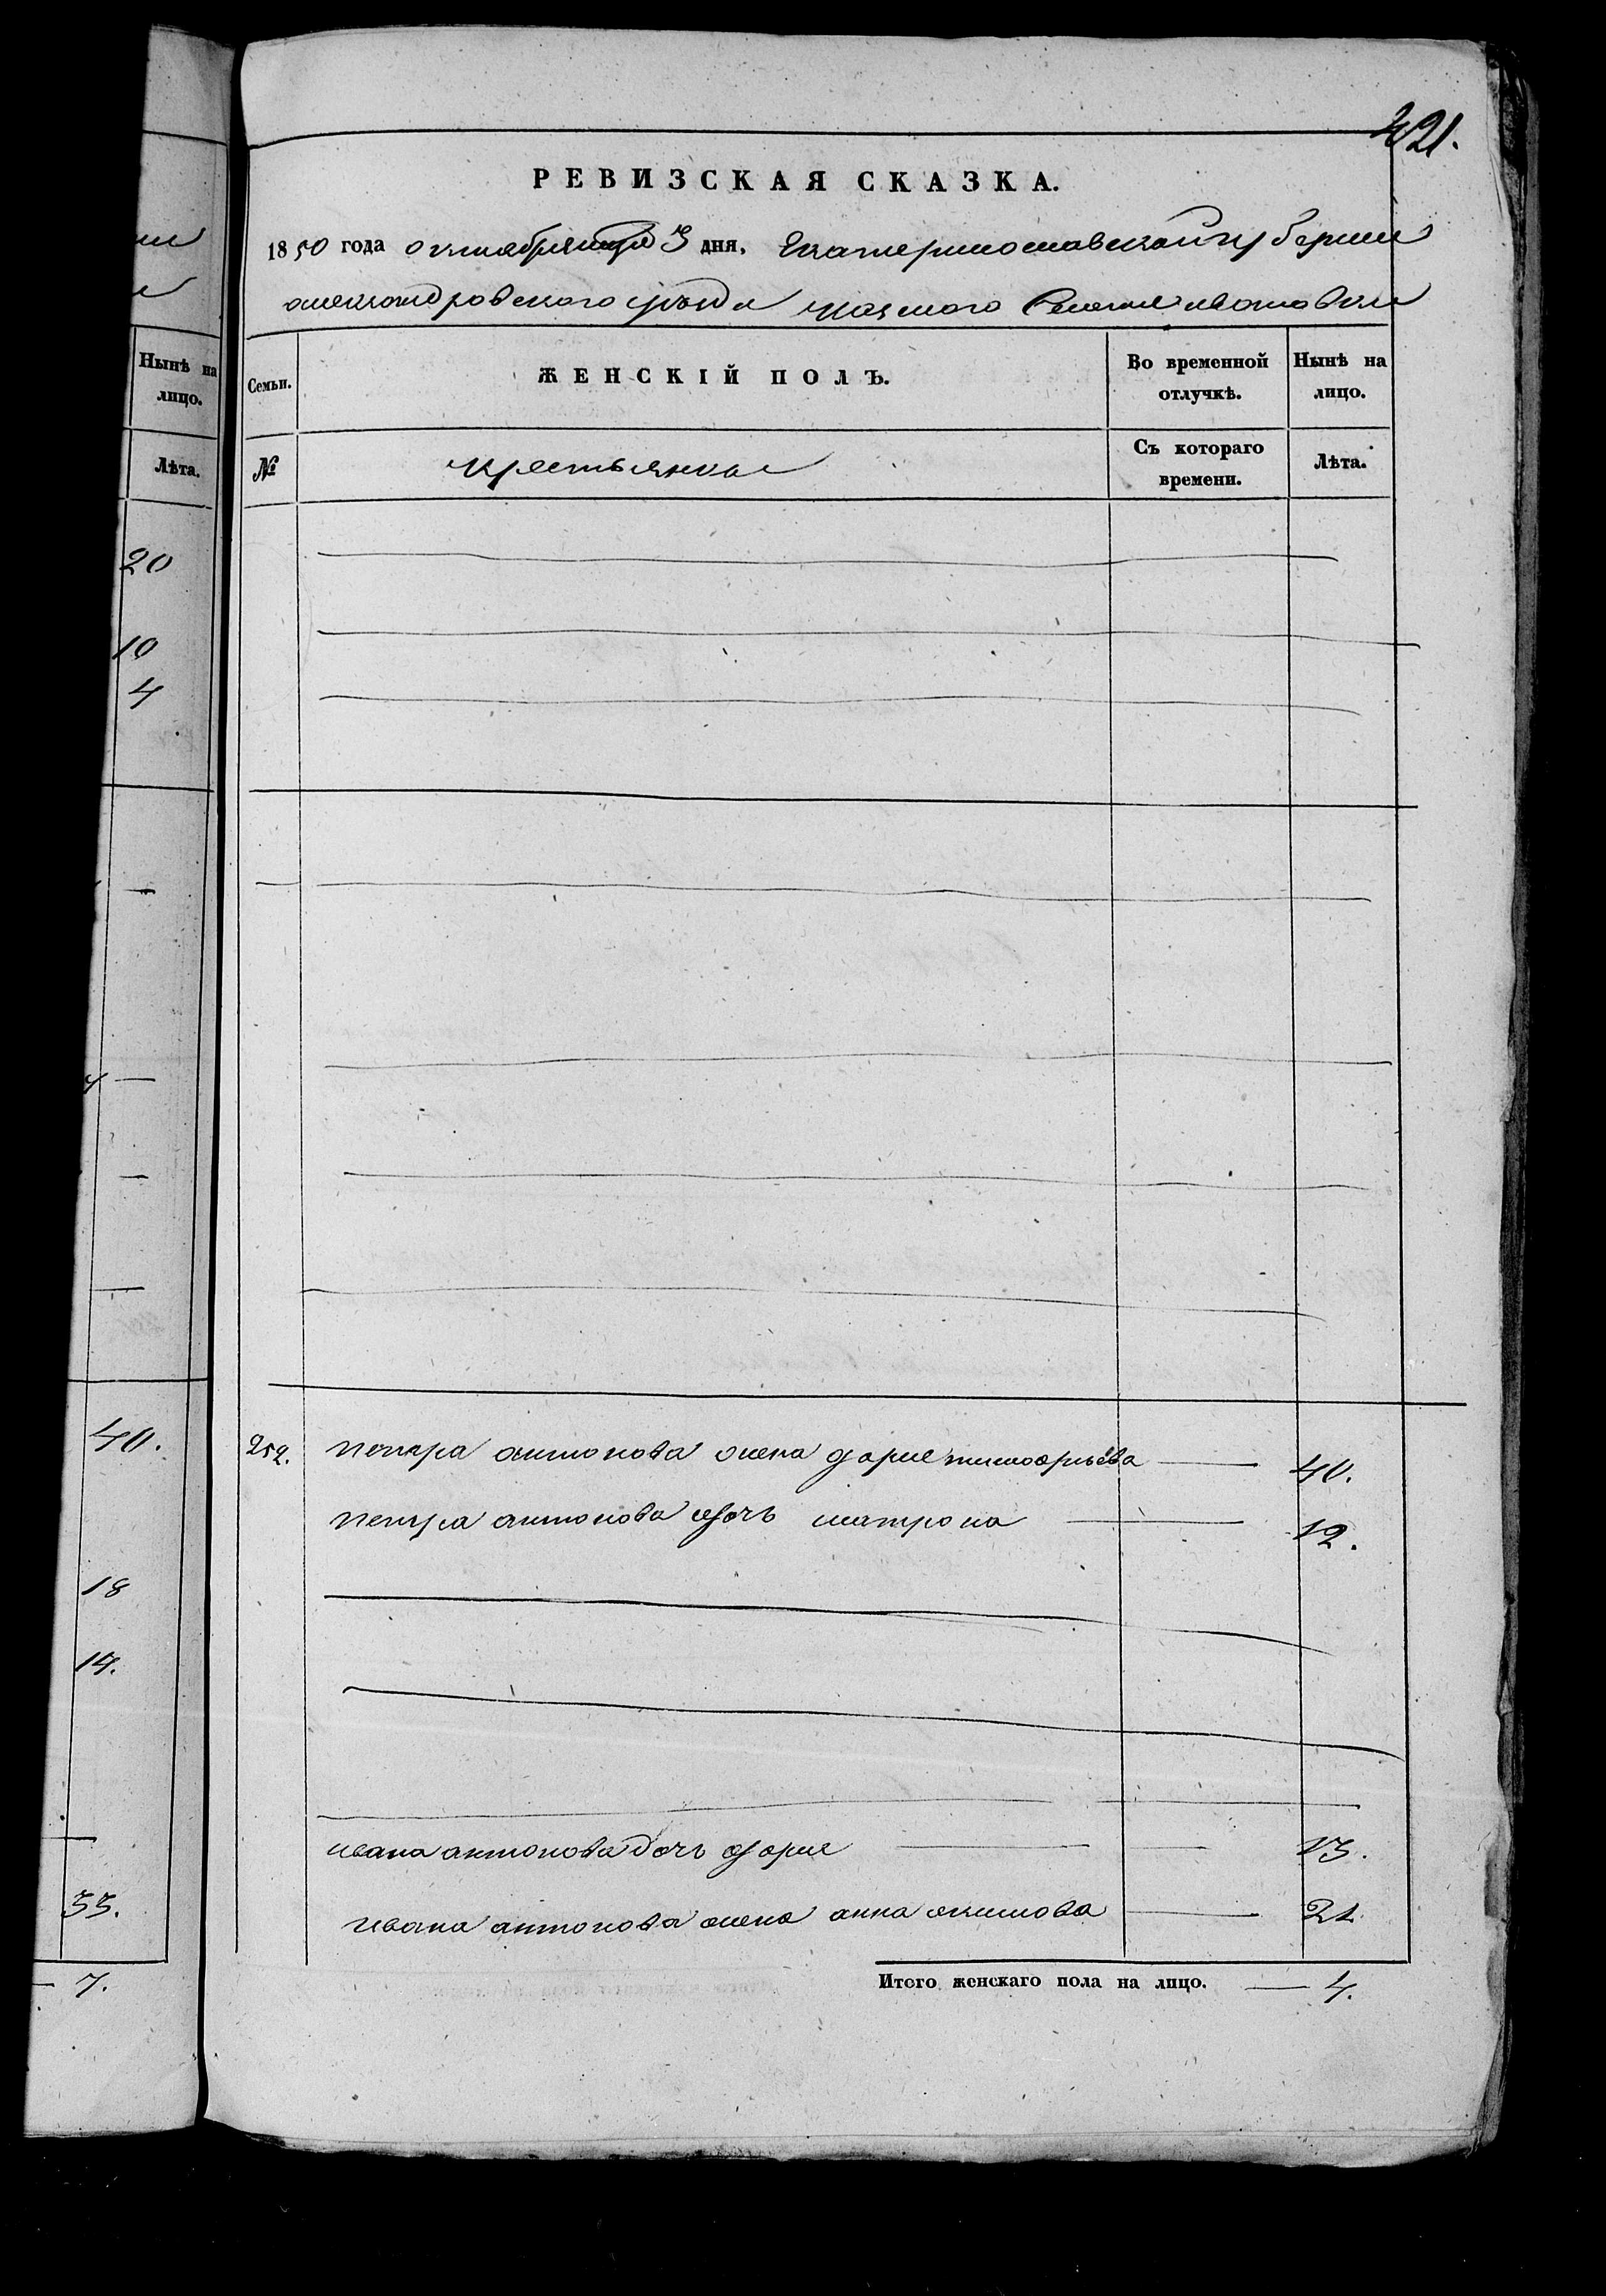 421.
РЕВИЗСКАЯ СКАЗКА.
1850 года октября 3 дня. Екатеринославской губернии
александровского уезда казенного Селения ивановки
Семьи.
ЖЕНСКІЙ ПОЛЪ.
Во временной отлучкѣ.
Нынѣ на лицо.
№
крестьянка
Съ котораго времени.
Лѣта.
252. петра антонова жена дария 40.
петра антонова дочь матрона 12.
ивана антонова дочь дария 13.
ивана антонова жена анна акимова 21
Итого женскаго пола на лицо. 4.
Нынѣ на лицо.
Лѣта.
20
10
4
40.
18
14.
33.
7.